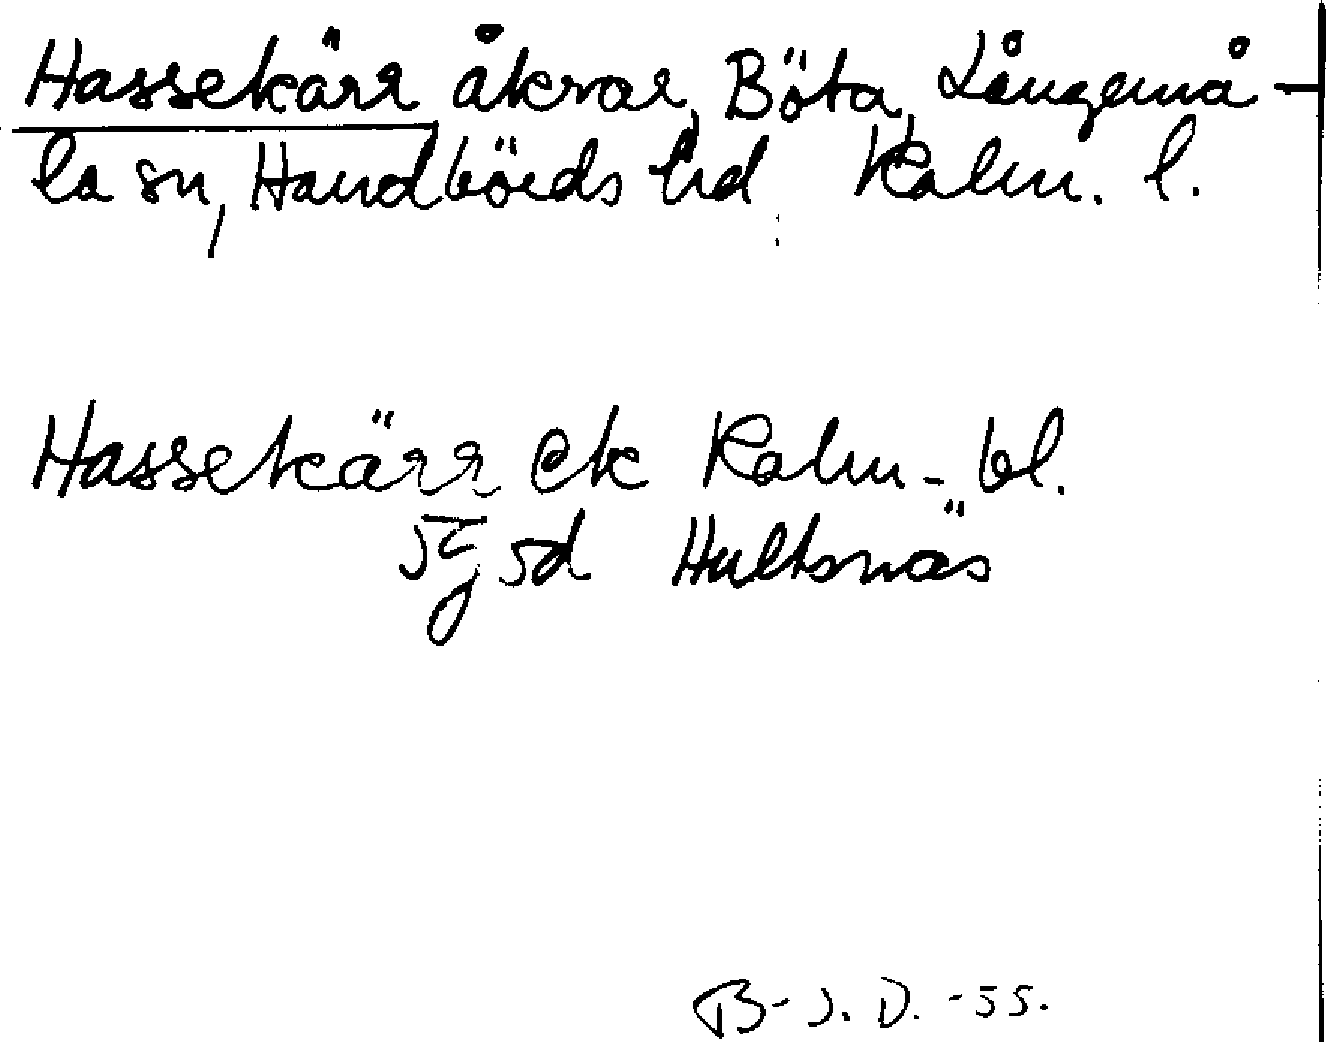 Hassekärr åkrar, Böta, Långemå-
la sn, Handbörds hd, Kalm. l.
Hassekärr ek Kalm-bl.
5g 5d Hultsnäs
B-J. D. -55.